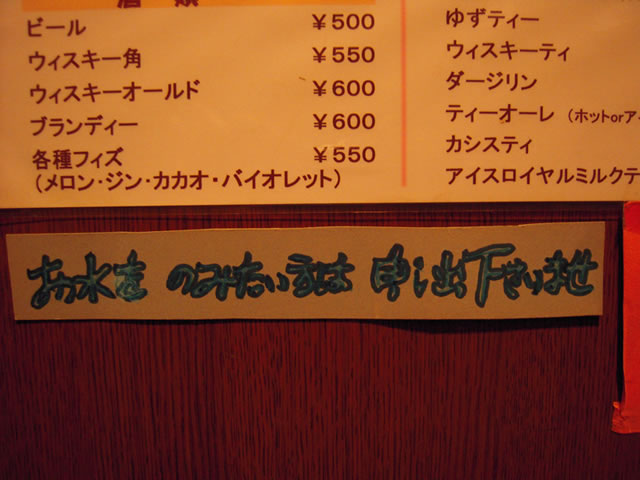 酒 類
ビール ￥500
ウィスキー角 ￥550
ウィスキーオールド ￥600
ブランディー ￥600
各種フィズ ￥550
(メロン・ジン・カカオ・バイオレット)
ゆずティー
ウィスキーティ
ダージリン
ティーオーレ (ホットorア
カシスティ
アイスロイヤルミルクテ
お水を のみたい方は 申し出下さいませ